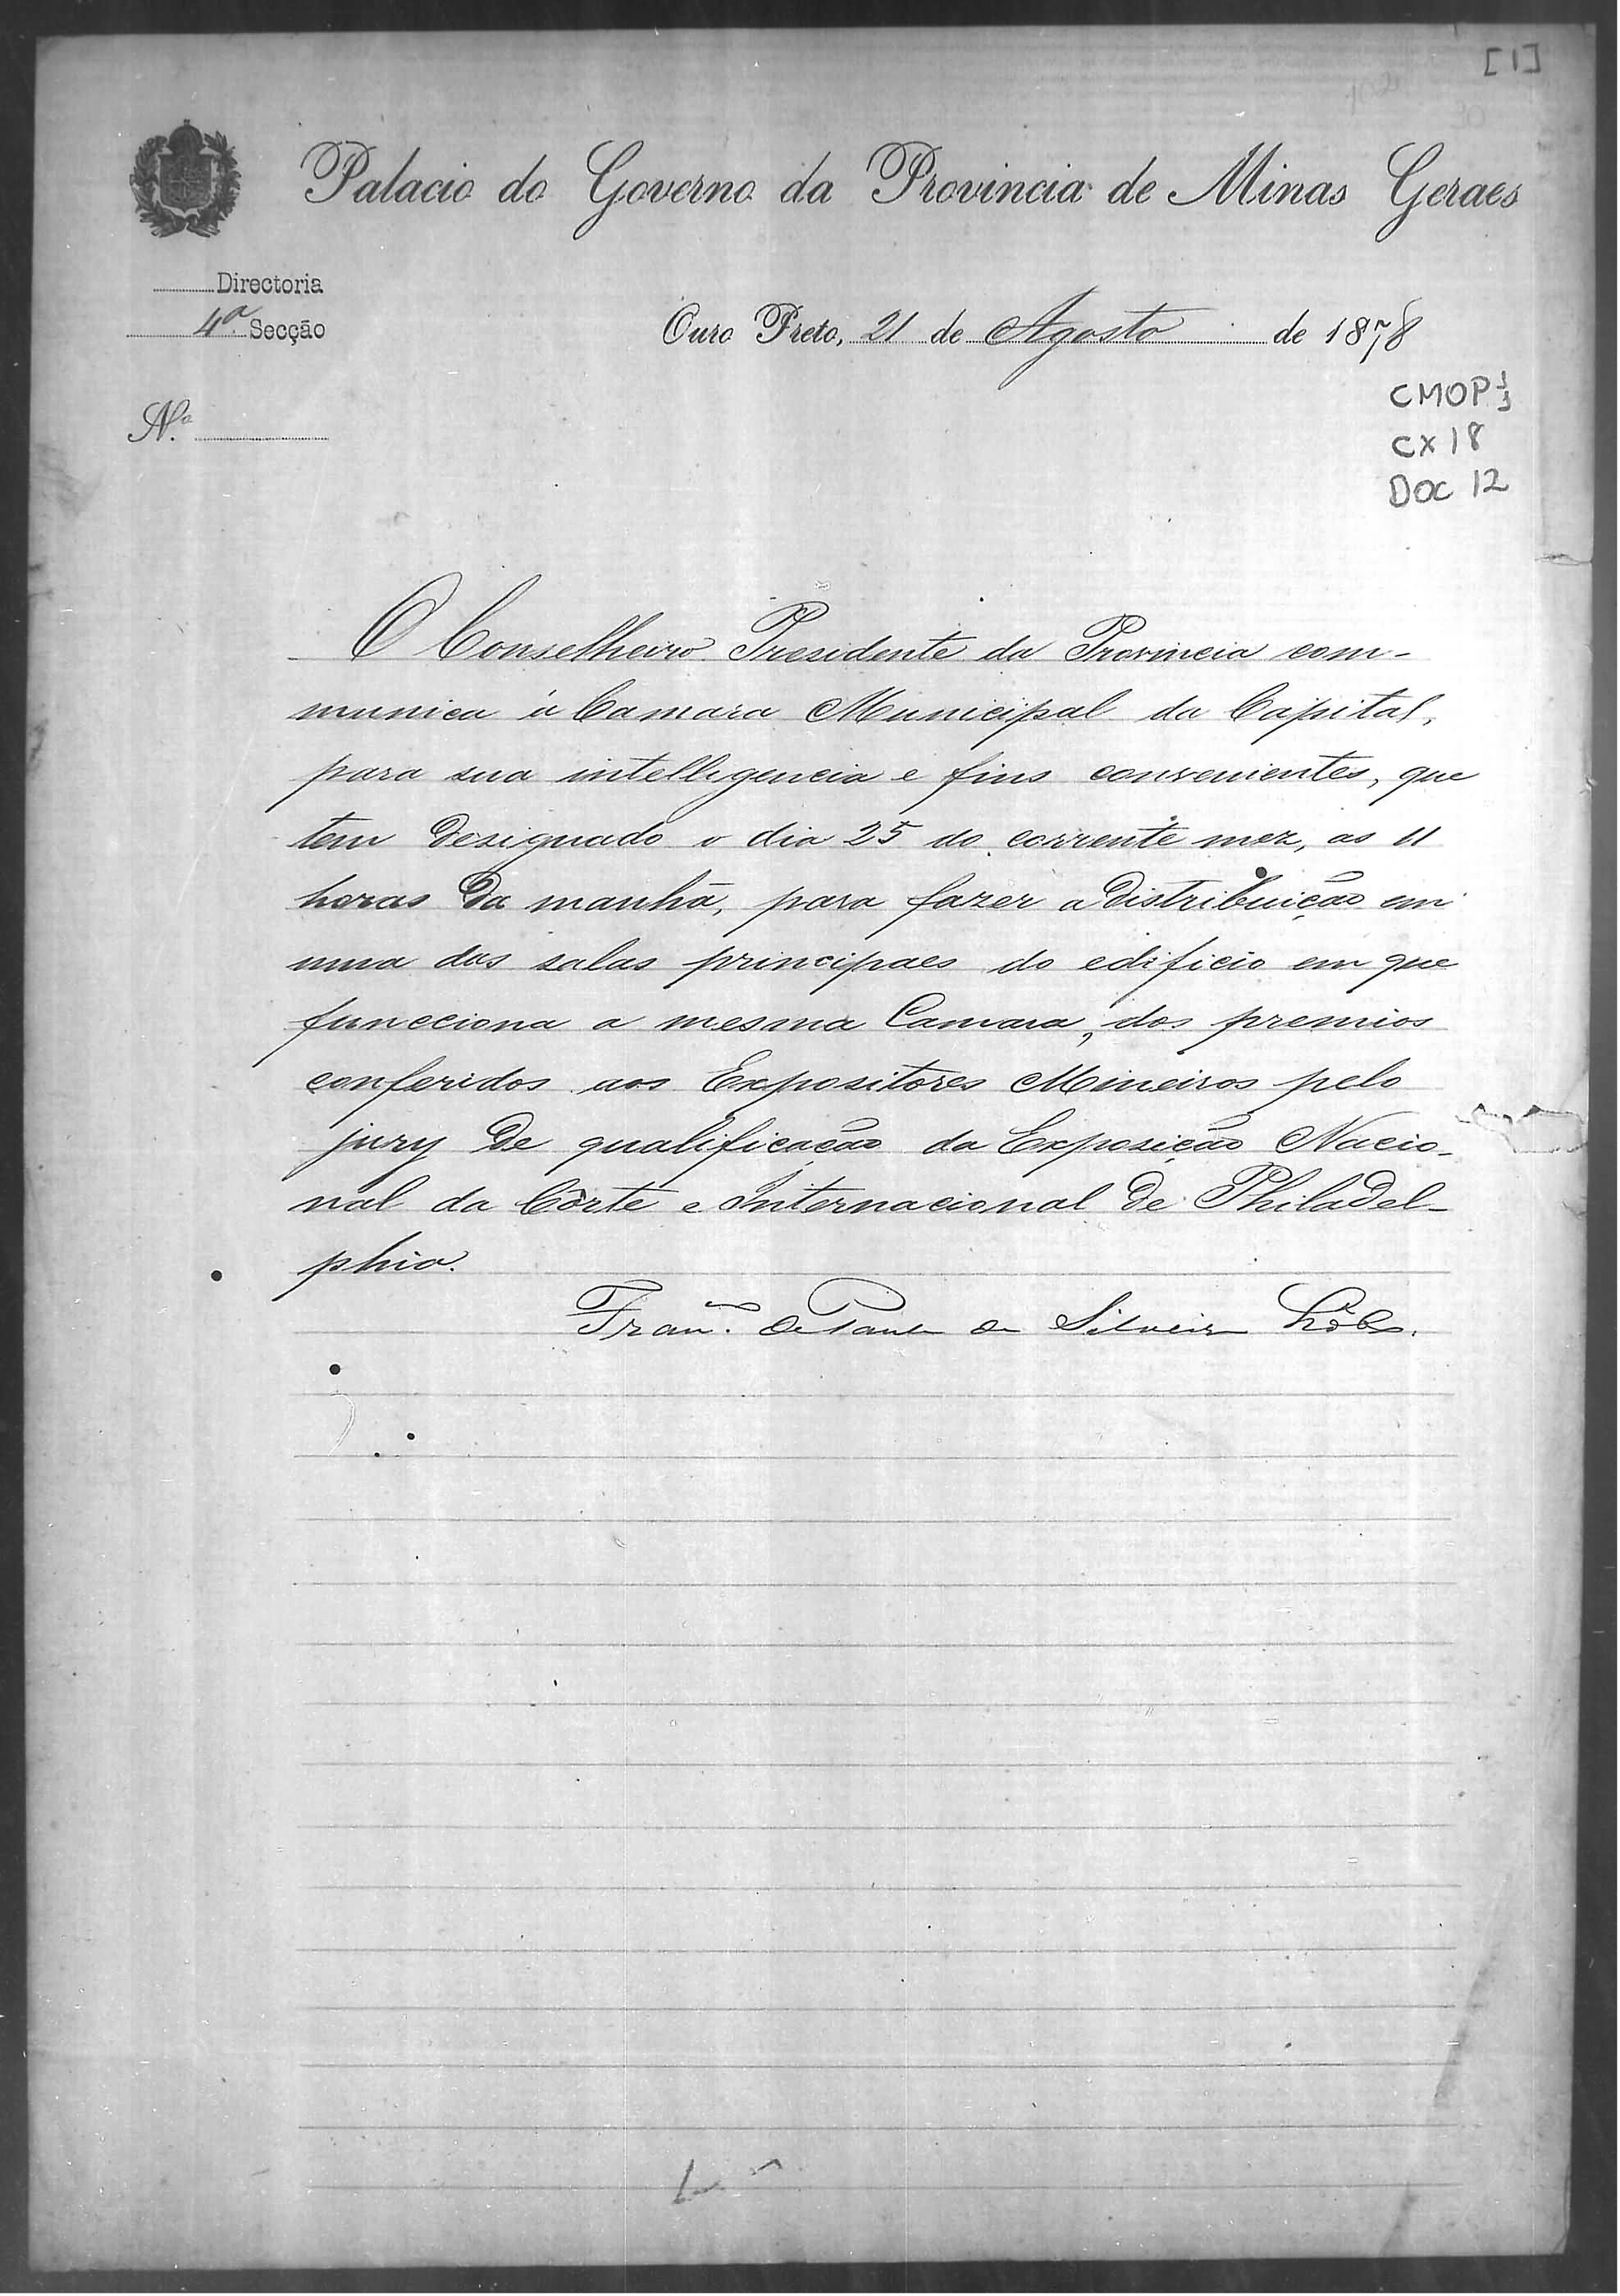 [1]
Palacio do Governo da Provincia de Minas Geraes
Directoria
4ª Secção
Ouro Preto, 21 de Agosto de 1878
Nº
CMOP
CX 18
DOC 12
O Conselheiro Presidente da Provincia com-
munica á Camara Municipal da Capital,
para sua intelligencia e fins convenientes, que
tem designado o dia 25 do corrente mez, as 11
horas da manhã, para fazer a distribuição em
uma das salas principaes do edificio em que
funcciona a mesma Camara, dos premios
conferidos aos Expositores Mineiros pelo
jury de qualificação da Exposição Nacio-
nal da Côrte e Internacional de Philadel-
phia.
Franco. de Paula da Silveira Lôbo.